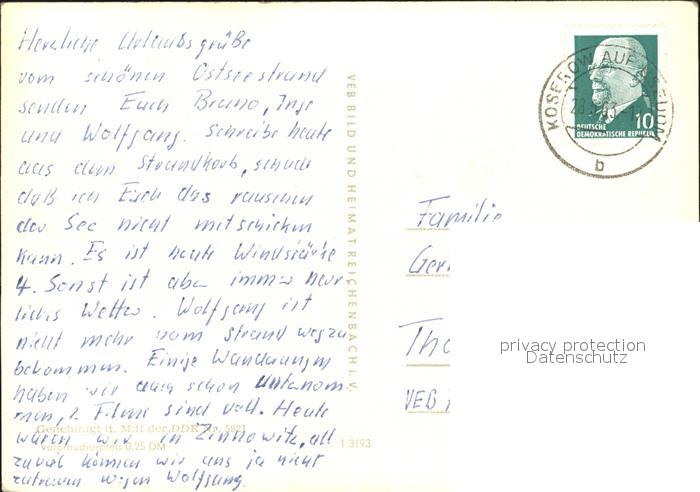 Herzliche Urlaubsgrüße
vom schönen Ostseestrand
senden Euch Bruno, Inge
und Wolfgang. Schreibe heute
aus dem Strandkorb, schade
daß ich Euch das rauschen
der See nicht mitschicken
kann. Es ist heute Windstärke
4. Sonst ist aber immer herr
liches Wetter. Wolfgang ist
nicht mehr vom Strand wegzu
bekommen. Einige Wanderungen
haben wir auch schon unternom-
men, 2 Filme sind voll. Heute
waren wir in Zinnowitz, all
zuviel können wir uns ja nicht
zutrauen wegen Wolfgang.
Genehmigt lt. MdI der DDR Nr. 5921
Verbraucherpreis 0,25 DM
1/3193
VEB BILD UND HEIMAT REICHENBACH I. V.
KOSEROW AUF USEDOM
b
10
DEUTSCHE
DEMOKRATISCHE REPUBLIK
Familie
Ger
Tho
VEB
privacy protection
Datenschutz